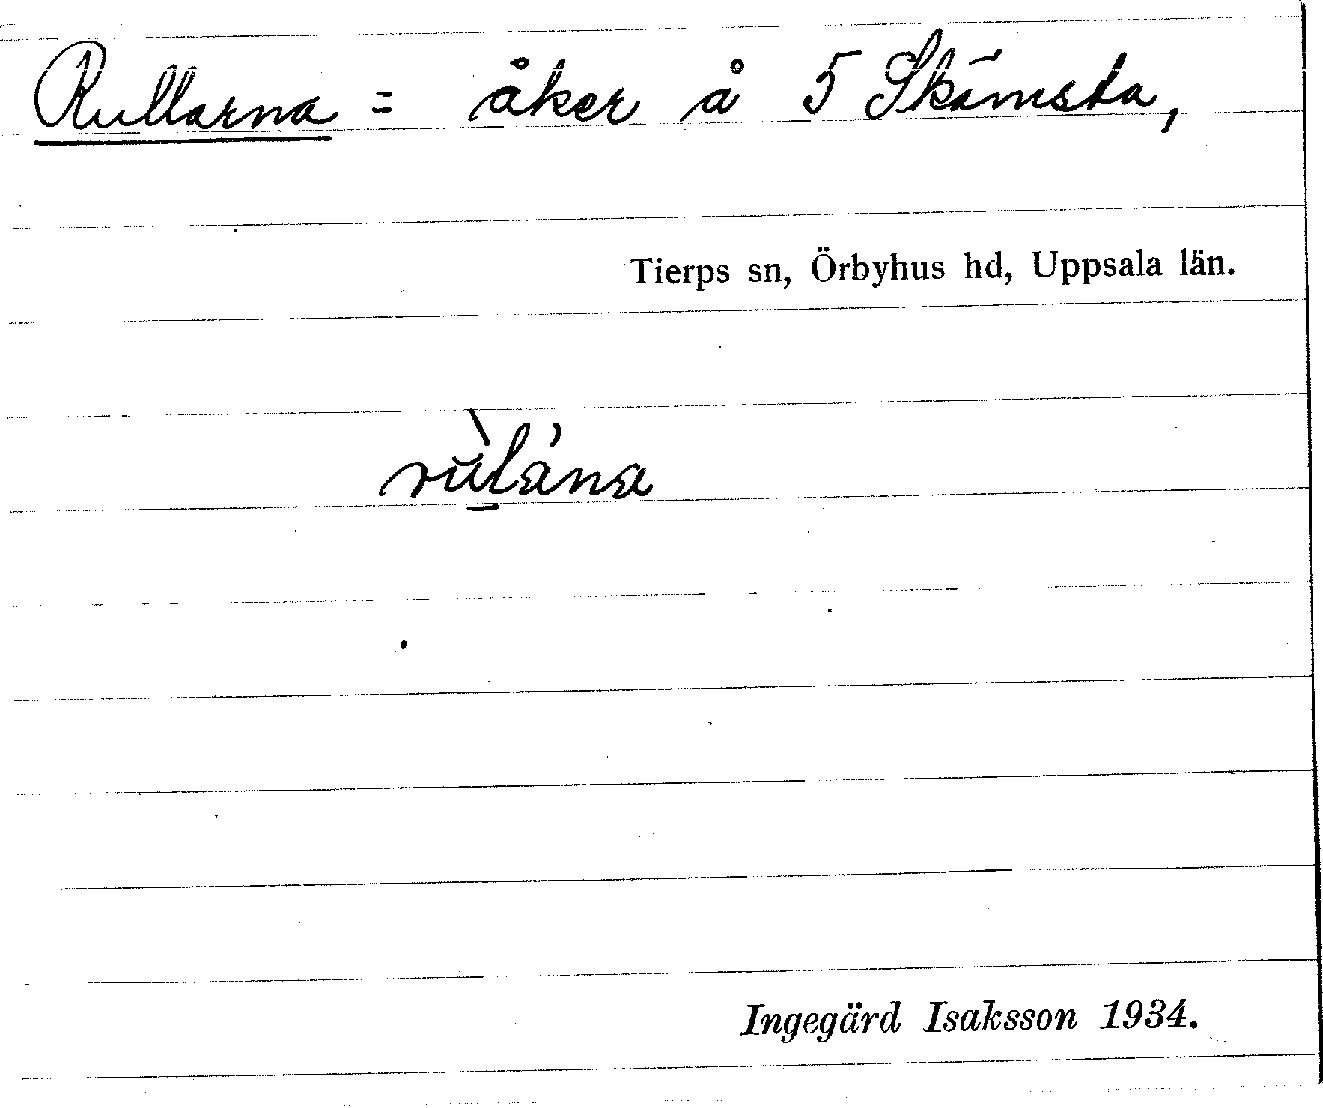 Rullarna = åker å 5 Skämsta,
Tierps sn, Örbyhus hd, Uppsala län.
Ingegärd Isaksson 1934.